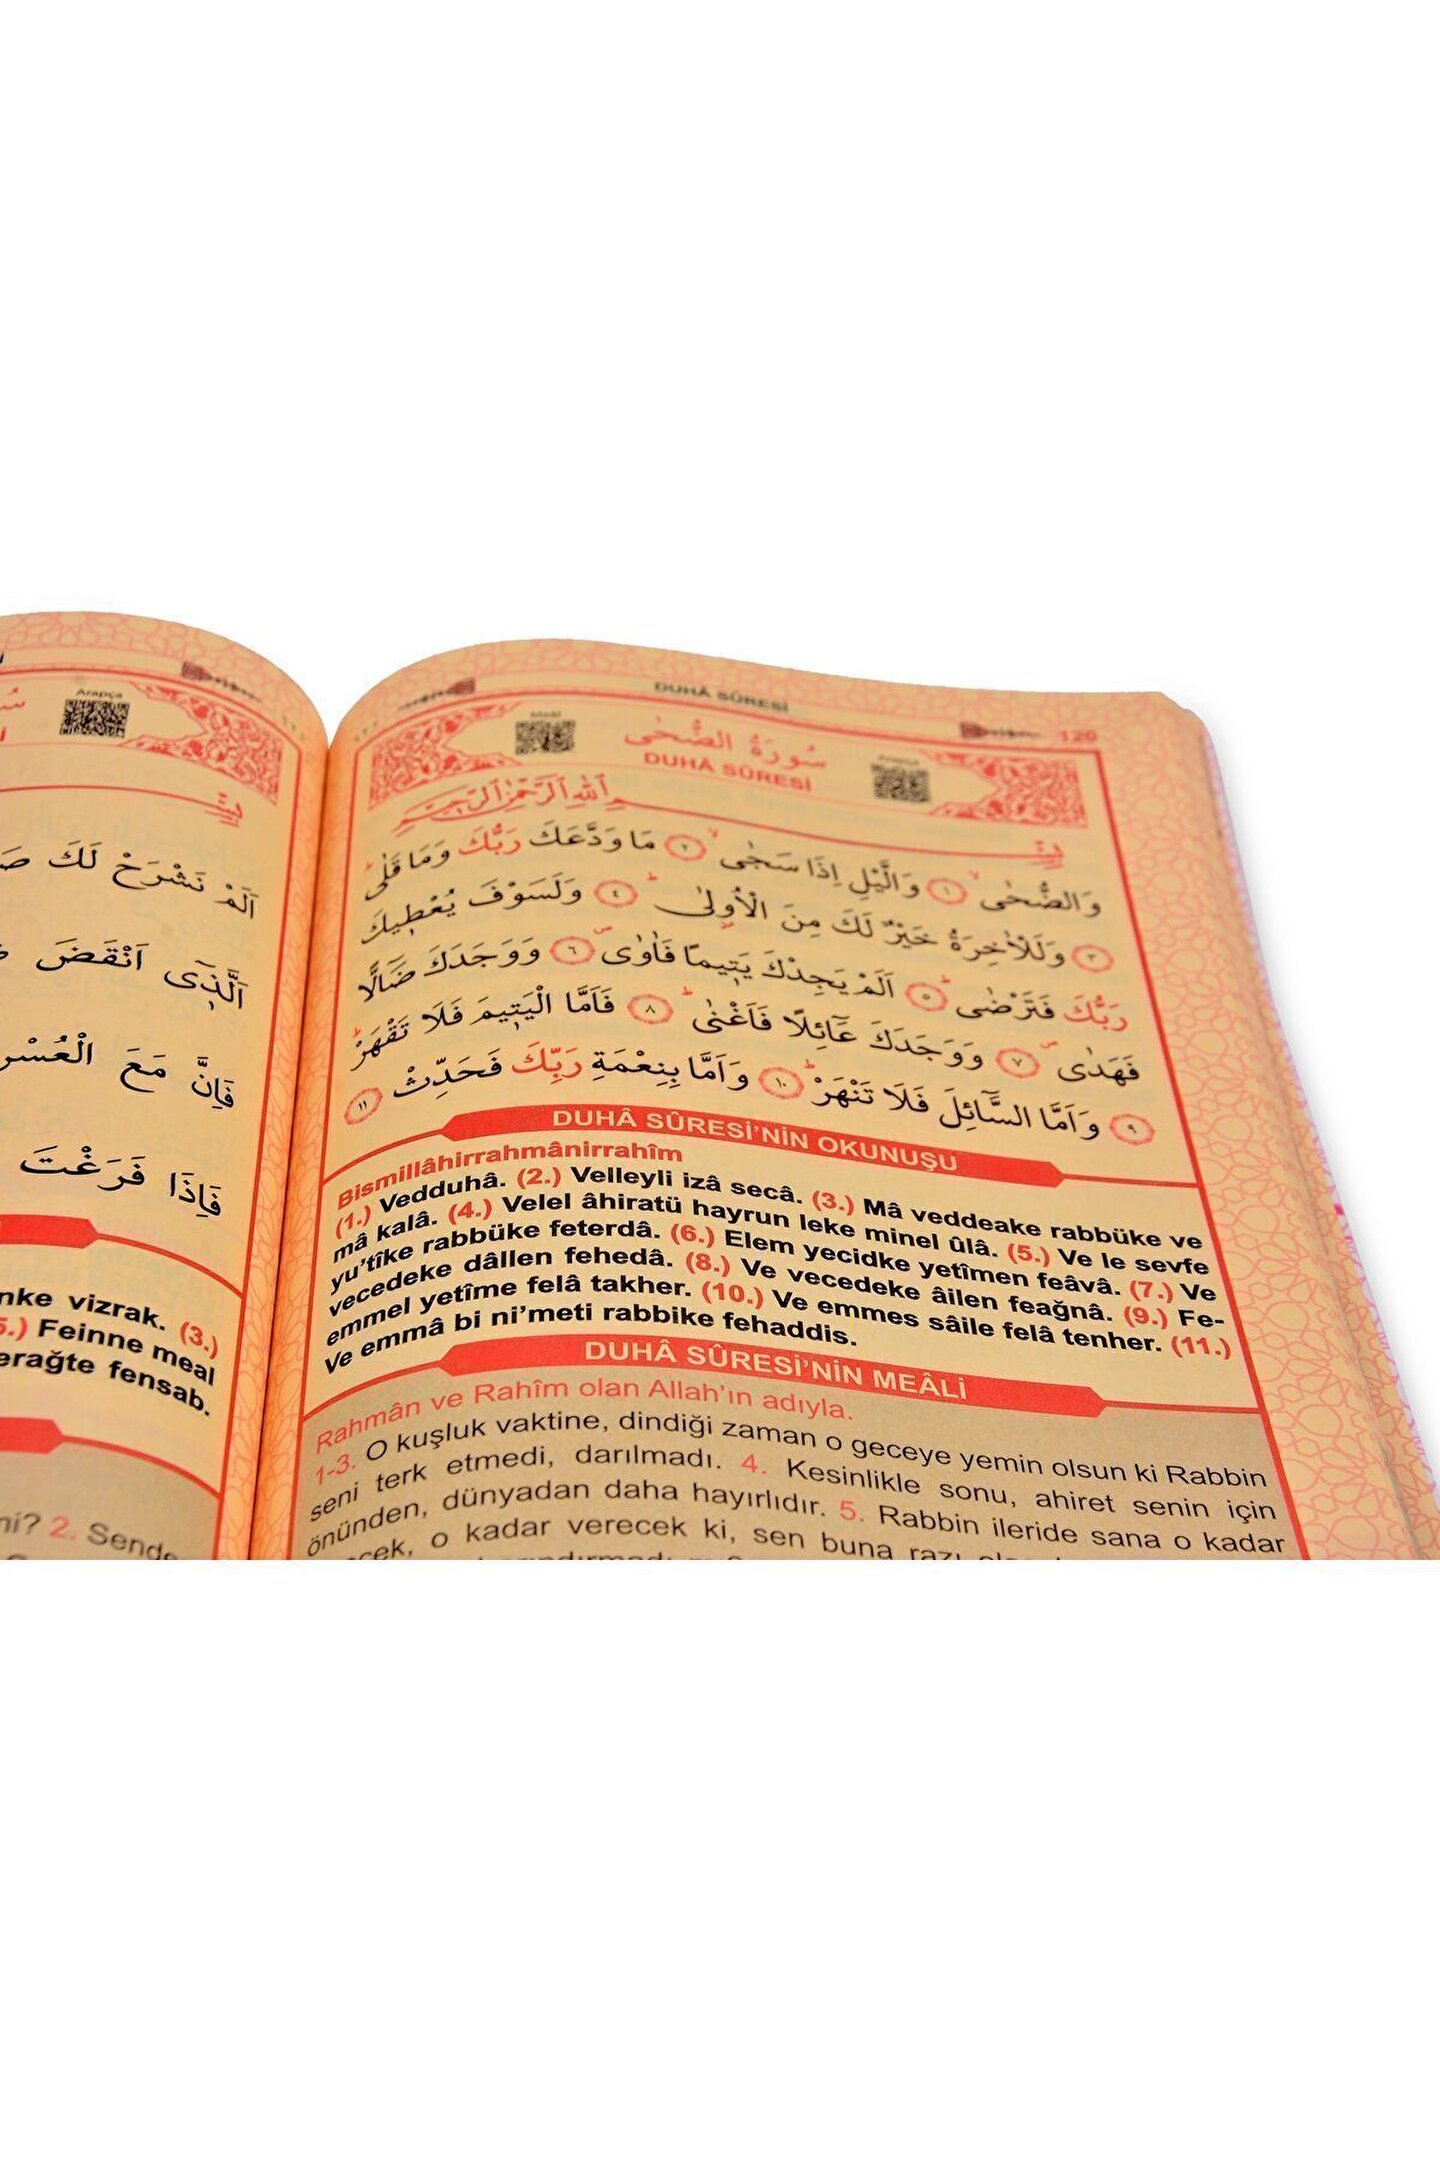 DUHÂ SÛRESİ
120
Meâl
سُورَةُ الضُّحٰى
DUHÂ SÛRESİ
بِسْــــمِ اللهِ الرَّحْمٰنِ الرَّحِيمِ
وَالضُّحٰىۙ ﴿١﴾ وَالَّيْلِ اِذَا سَجٰىۙ ﴿٢﴾ مَا وَدَّعَكَ رَبُّكَ وَمَا قَلٰىۜ
﴿٣﴾ وَلَلْاٰخِرَةُ خَيْرٌ لَكَ مِنَ الْاُو۫لٰىۜ ﴿٤﴾ وَلَسَوْفَ يُعْط۪يكَ
رَبُّكَ فَتَرْضٰىۜ ﴿٥﴾ اَلَمْ يَجِدْكَ يَت۪يمًا فَاٰوٰىۖ ﴿٦﴾ وَوَجَدَكَ ضَٓالًّا
فَهَدٰىۖ ﴿٧﴾ وَوَجَدَكَ عَٓائِلًا فَاَغْنٰىۜ ﴿٨﴾ فَاَمَّا الْيَت۪يمَ فَلَا تَقْهَرْۜ
﴿٩﴾ وَاَمَّا السَّٓائِلَ فَلَا تَنْهَرْۜ ﴿١٠﴾ وَاَمَّا بِنِعْمَةِ رَبِّكَ فَحَدِّثْ ﴿١١﴾
DUHÂ SÛRESİ'NİN OKUNUŞU
Bismillâhirrahmânirrahîm
(1.) Vedduhâ. (2.) Velleyli izâ secâ. (3.) Mâ veddeake rabbüke ve
mâ kalâ. (4.) Velel âhiratü hayrun leke minel ûlâ. (5.) Ve le sevfe
yu'tîke rabbüke feterdâ. (6.) Elem yecidke yetîmen feâvâ. (7.) Ve
vecedeke dâllen fehedâ. (8.) Ve vecedeke âilen feağnâ. (9.) Fe-
emmel yetîme felâ takher. (10.) Ve emmes sâile felâ tenher. (11.)
Ve emmâ bi ni'meti rabbike fehaddis.
DUHÂ SÛRESİ'NİN MEÂLİ
Rahmân ve Rahîm olan Allah'ın adıyla.
1-3. O kuşluk vaktine, dindiği zaman o geceye yemin olsun ki Rabbin
seni terk etmedi, darılmadı. 4. Kesinlikle sonu, ahiret senin için
önünden, dünyadan daha hayırlıdır. 5. Rabbin ileride sana o kadar
o kadar verecek ki, sen buna razı
Arapça
اَلَمْ نَشْرَحْ لَكَ
اَلَّذ۪ٓي اَنْقَضَ
فَاِنَّ مَعَ الْعُسْرِ
فَاِذَا فَرَغْتَ
vizrak. (3.)
Feinne meal
fensab.
2. Sende